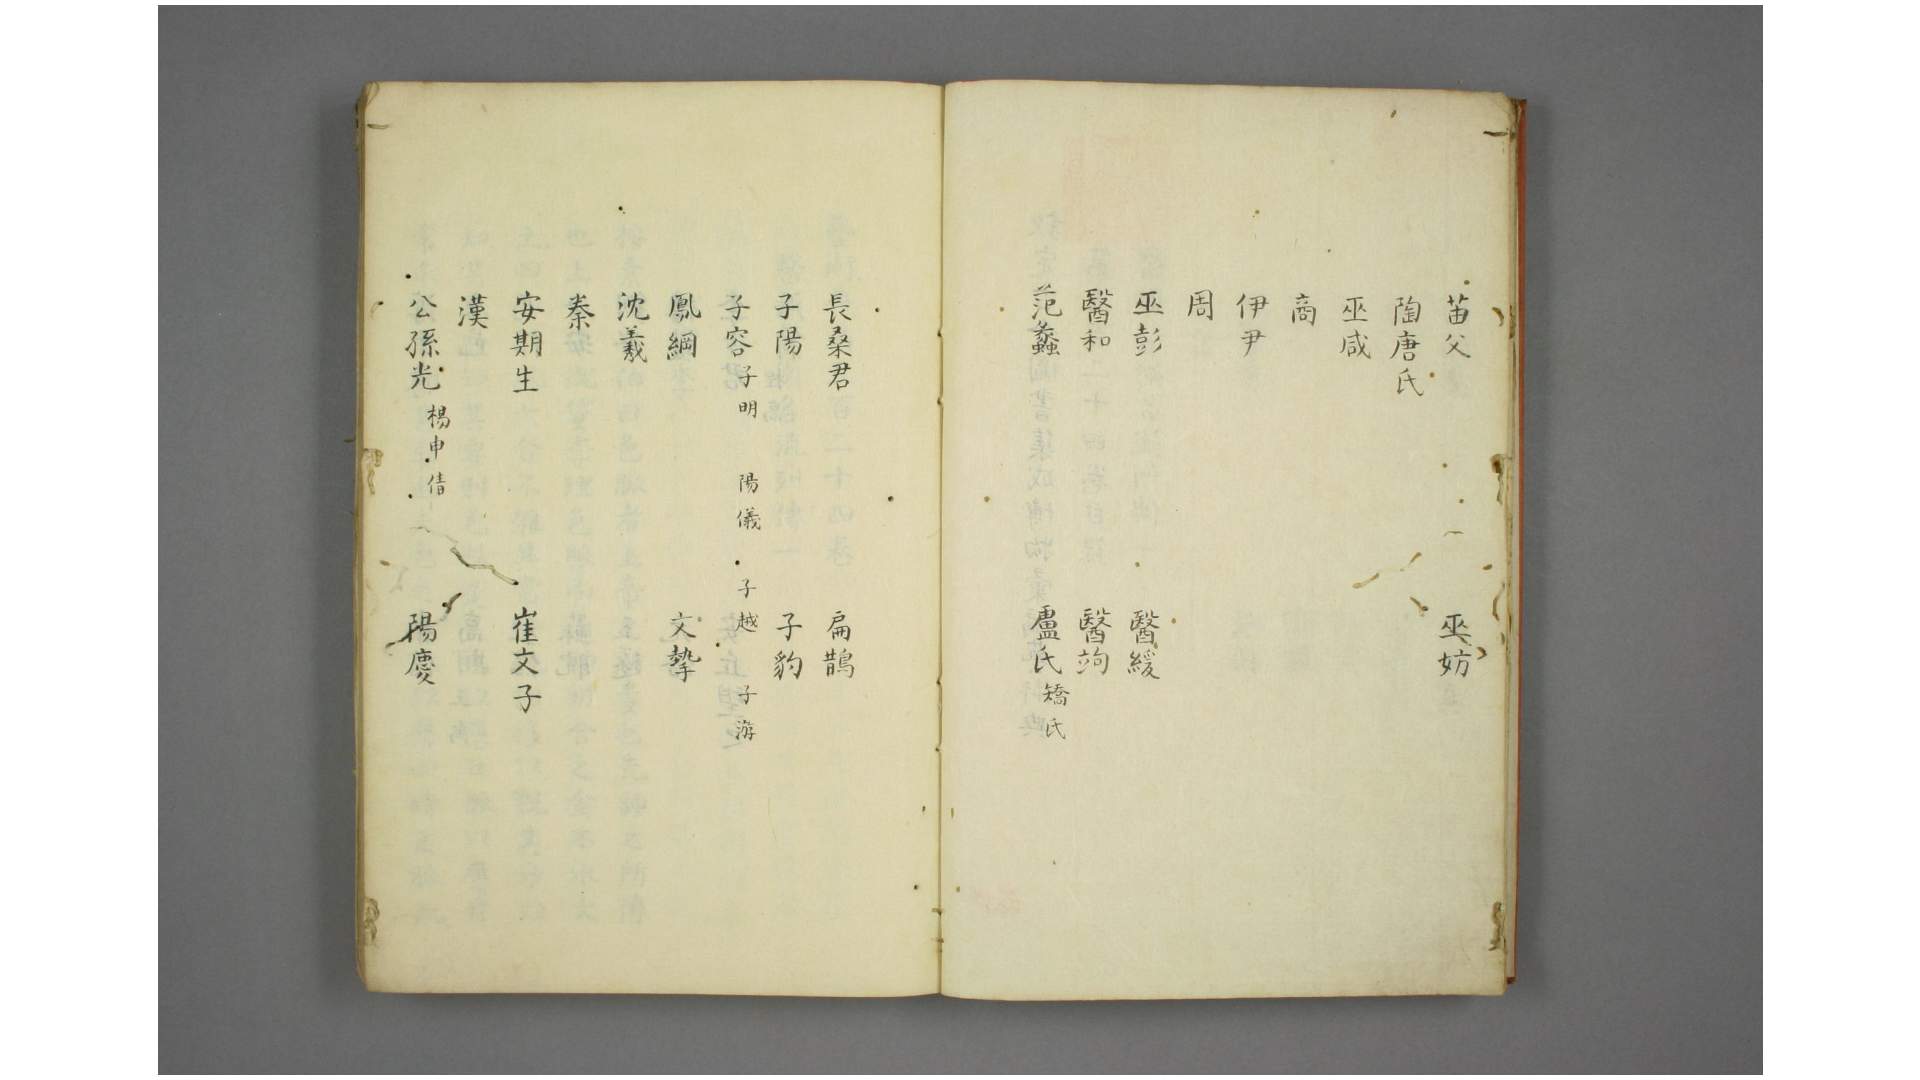 苗父 巫妨
陶唐氏
巫咸
商
伊尹
周
巫彭 醫緩
醫和 醫竘
范蠡 盧氏 矯氏
長桑君 扁鵲
子陽 子豹
子容 子明 陽儀 子越 子游
鳳綱 文摯
沈羲
秦
安期生 崔文子
漢
公孫光 楊中倩 陽慶